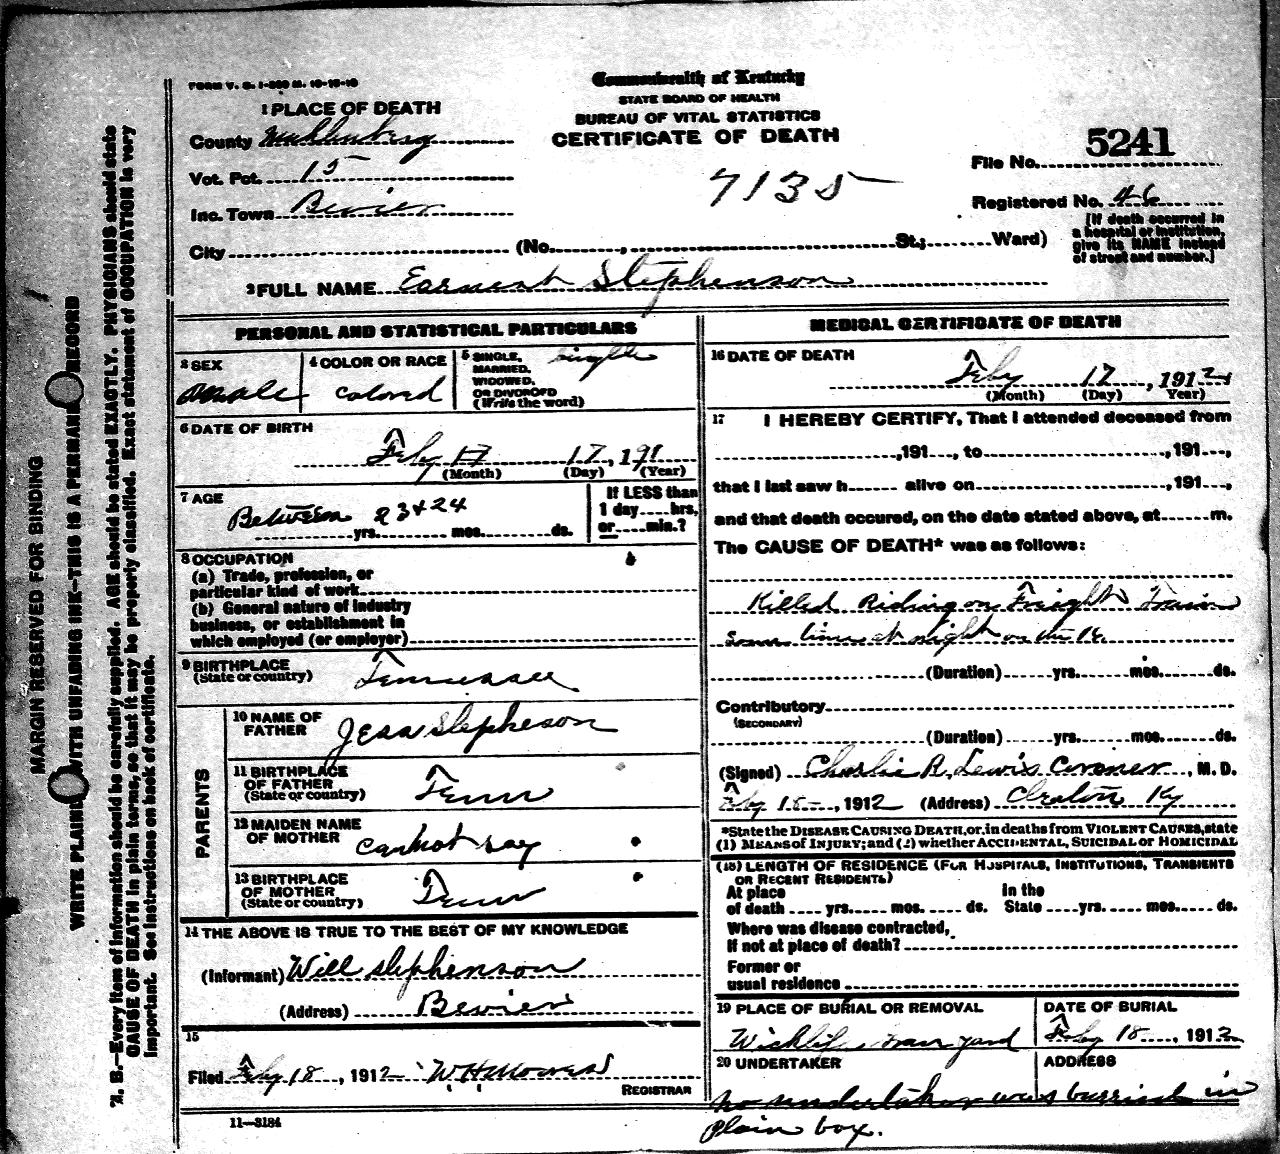 FORM V. S. 1-200 M. 10-15-10
Commonwealth of Kentucky
STATE BOARD OF HEALTH
BUREAU OF VITAL STATISTICS
CERTIFICATE OF DEATH
1 PLACE OF DEATH
County Muhlenberg
Vot. Pct. 15
Inc. Town Bevier
City (No. , St.; Ward)
7135
File No. 5241
Registered No. 46
[If death occurred in a hospital or institution, give its NAME instead of street and number.]
2 FULL NAME Earnest Stephenson
PERSONAL AND STATISTICAL PARTICULARS
3 SEX
male
4 COLOR OR RACE
Colored
5 SINGLE, MARRIED, WIDOWED, OR DIVORCED (Write the word)
single
6 DATE OF BIRTH
Feby 17 17, 191
(Month) (Day) (Year)
7 AGE
Between 23 & 24
yrs. mos. ds.
If LESS than 1 day hrs, or min.?
8 OCCUPATION
(a) Trade, profession, or
particular kind of work
(b) General nature of industry
business, or establishment in
which employed (or employer)
9 BIRTHPLACE
(State or country)
Tennessee
PARENTS
10 NAME OF FATHER
Jess Stepheson
11 BIRTHPLACE OF FATHER (State or country)
Tenn
12 MAIDEN NAME OF MOTHER
Cannot say
13 BIRTHPLACE OF MOTHER (State or country)
Tenn
14 THE ABOVE IS TRUE TO THE BEST OF MY KNOWLEDGE
(Informant) Will Stephenson
(Address) Bevier
15
Filed Feby 18, 1912
REGISTRAR
11-3184
MEDICAL CERTIFICATE OF DEATH
16 DATE OF DEATH
Feby 17, 1912
(Month) (Day) (Year)
17 I HEREBY CERTIFY, That I attended deceased from
, 191 , to , 191 ,
that I last saw h alive on , 191 ,
and that death occured, on the date stated above, at m.
The CAUSE OF DEATH* was as follows:
Killed Riding on Freight Train
some time at night on the
(Duration) yrs. mos. ds.
Contributory
(SECONDARY)
(Duration) yrs. mos. ds.
(Signed) Charlie R. Lewis Coroner, M. D.
Feby 18, 1912 (Address) Ky
*State the DISEASE CAUSING DEATH, or, in deaths from VIOLENT CAUSES, state
(1) MEANS of INJURY; and (2) whether ACCIDENTAL, SUICIDAL or HOMICIDAL
(18) LENGTH OF RESIDENCE (FOR HOSPITALS, INSTITUTIONS, TRANSIENTS
OR RECENT RESIDENTS)
At place of death yrs. mos. ds. In the State yrs. mos. ds.
Where was disease contracted,
If not at place of death?
Former or
usual residence
19 PLACE OF BURIAL OR REMOVAL
Wickliffe yard
DATE OF BURIAL
Feby 18, 1912
20 UNDERTAKER
ADDRESS
no undertaker was burried in
plain box.
MARGIN RESERVED FOR BINDING
WRITE PLAINLY WITH UNFADING INK—THIS IS A PERMANENT RECORD
N. B.—Every item of information should be carefully supplied. AGE should be stated EXACTLY. PHYSICIANS should state
CAUSE OF DEATH in plain terms, so that it may be properly classified. Exact statement of OCCUPATION is very
important. See instructions on back of certificate.